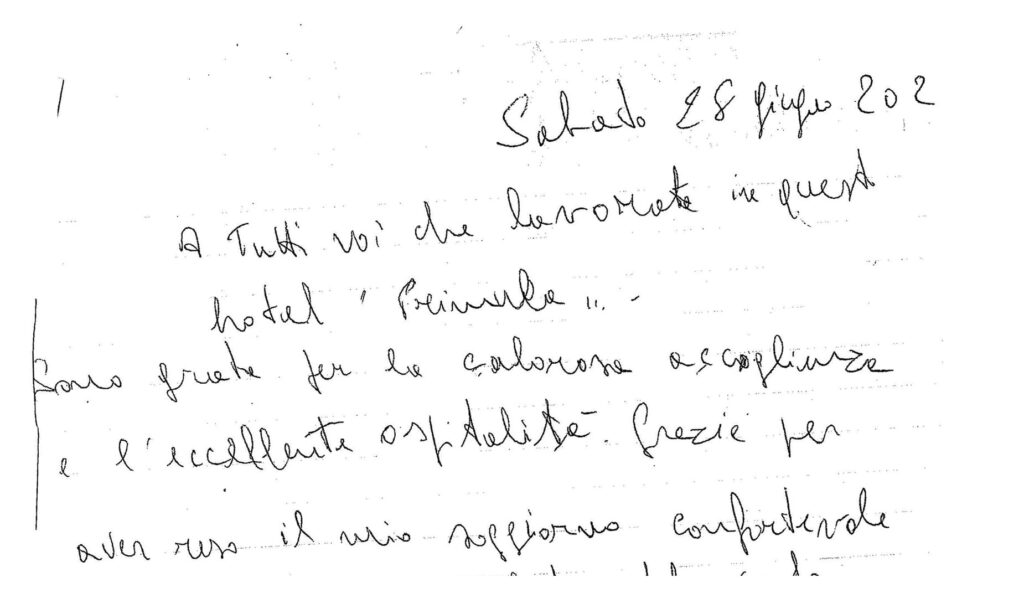 Sabado 28 giugno 202
A Tutti voi che lavorate in quest
hotel " Primula ". -
Sono grata per la calorosa accoglienza
e l'eccellente ospitalità. Grazie per
aver reso il mio soggiorno confortevole